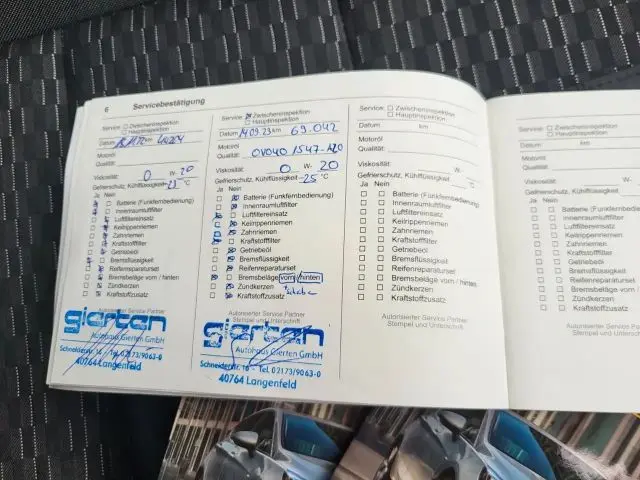 6 Servicebestätigung
Service: □ Zwischeninspektion
□ Hauptinspektion
Datum km
Motoröl
Qualität:
Viskosität: 0 W- 20
Gefrierschutz, Kühlflüssigkeit °C
Ja Nein
Batterie (Funkfernbedienung)
Innenraumluftfilter
Luftfiltereinsatz
Keilrippenriemen
Zahnriemen
Kraftstofffilter
Getriebeöl
Bremsflüssigkeit
Reifenreparaturset
Bremsbeläge vorn / hinten
Zündkerzen
Kraftstoffzusatz
Autorisierter Service Partner
gierten
Autohaus Gierten GmbH
Schneiderstr. 16 - Tel. 02173/9063-0
40764 Langenfeld
Service: Zwischeninspektion
Hauptinspektion
Datum 14.09.23 km 69.042
Motoröl
Qualität:
Viskosität: 0 W- 20
Gefrierschutz, Kühlflüssigkeit -25 °C
Ja Nein
Batterie (Funkfernbedienung)
Innenraumluftfilter
Luftfiltereinsatz
Keilrippenriemen
Zahnriemen
Kraftstofffilter
Getriebeöl
Bremsflüssigkeit
Reifenreparaturset
Bremsbeläge vorn / hinten
Zündkerzen
Kraftstoffzusatz
Autorisierter Service Partner
Stempel und Unterschrift
gierten
Autohaus Gierten GmbH
Schneiderstr. 16 - Tel. 02173/9063-0
40764 Langenfeld
Service: □ Zwischeninspektion
□ Hauptinspektion
Datum km
Motoröl
Qualität:
Viskosität: W-
Gefrierschutz, Kühlflüssigkeit °C
Ja Nein
Batterie (Funkfernbedienung)
Innenraumluftfilter
Luftfiltereinsatz
Keilrippenriemen
Zahnriemen
Kraftstofffilter
Getriebeöl
Bremsflüssigkeit
Reifenreparaturset
Bremsbeläge vorn / hinten
Zündkerzen
Kraftstoffzusatz
Autorisierter Service Partner
Stempel und Unterschrift
Service: □ Zwischeninspektion
□ Hauptinspektion
Datum km
Motoröl
Qualität:
Viskosität: W-
Gefrierschutz, Kühlflüssigkeit
Ja Nein
Batterie (Funkfernbedienung)
Innenraumluftfilter
Luftfiltereinsatz
Keilrippenriemen
Zahnriemen
Kraftstofffilter
Getriebeöl
Bremsflüssigkeit
Reifenreparaturset
Bremsbeläge vorn / hinten
Zündkerzen
Kraftstoffzusatz
Autorisierter Service Pa
Stempel und Unterschrift